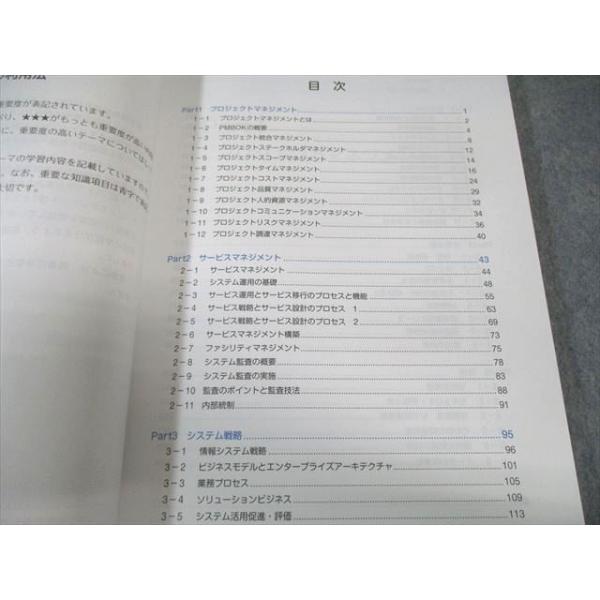 の利用法
重要度が表記されています。
おり、★★★がもっとも重要度が高い
に、重要度の高いテーマについては
ーマの学習内容を記載しています
。なお、重要な知識項目は青字で
大切です。
目 次
Part1 プロジェクトマネジメント 1
1-1 プロジェクトマネジメントとは 2
1-2 PMBOKの概要 4
1-3 プロジェクト統合マネジメント 8
1-4 プロジェクトステークホルダマネジメント 12
1-5 プロジェクトスコープマネジメント 14
1-6 プロジェクトタイムマネジメント 16
1-7 プロジェクトコストマネジメント 24
1-8 プロジェクト品質マネジメント 29
1-9 プロジェクト人的資源マネジメント 32
1-10 プロジェクトコミュニケーションマネジメント 34
1-11 プロジェクトリスクマネジメント 36
1-12 プロジェクト調達マネジメント 40
Part2 サービスマネジメント 43
2-1 サービスマネジメント 44
2-2 システム運用の基礎 48
2-3 サービス運用とサービス移行のプロセスと機能 55
2-4 サービス戦略とサービス設計のプロセス 1 63
2-5 サービス戦略とサービス設計のプロセス 2 69
2-6 サービスマネジメント構築 73
2-7 ファシリティマネジメント 75
2-8 システム監査の概要 78
2-9 システム監査の実施 83
2-10 監査のポイントと監査技法 88
2-11 内部統制 91
Part3 システム戦略 95
3-1 情報システム戦略 96
3-2 ビジネスモデルとエンタープライズアーキテクチャ 101
3-3 業務プロセス 105
3-4 ソリューションビジネス 109
3-5 システム活用促進・評価 113